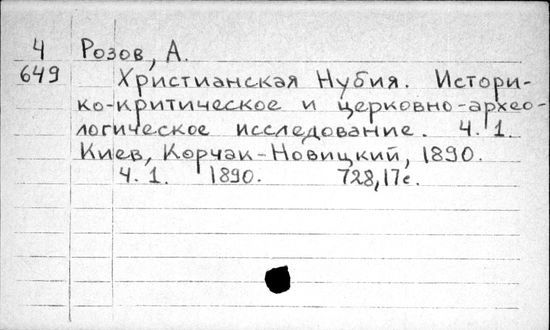 4 Розов, А.
649 Христианская Нубия. Истори-
ко-критическое и церковно-архео-
логическое исследование. Ч. 1.
Киев, Корчак-Новицкий, 1890.
Ч. 1. 1890. 728,17с.